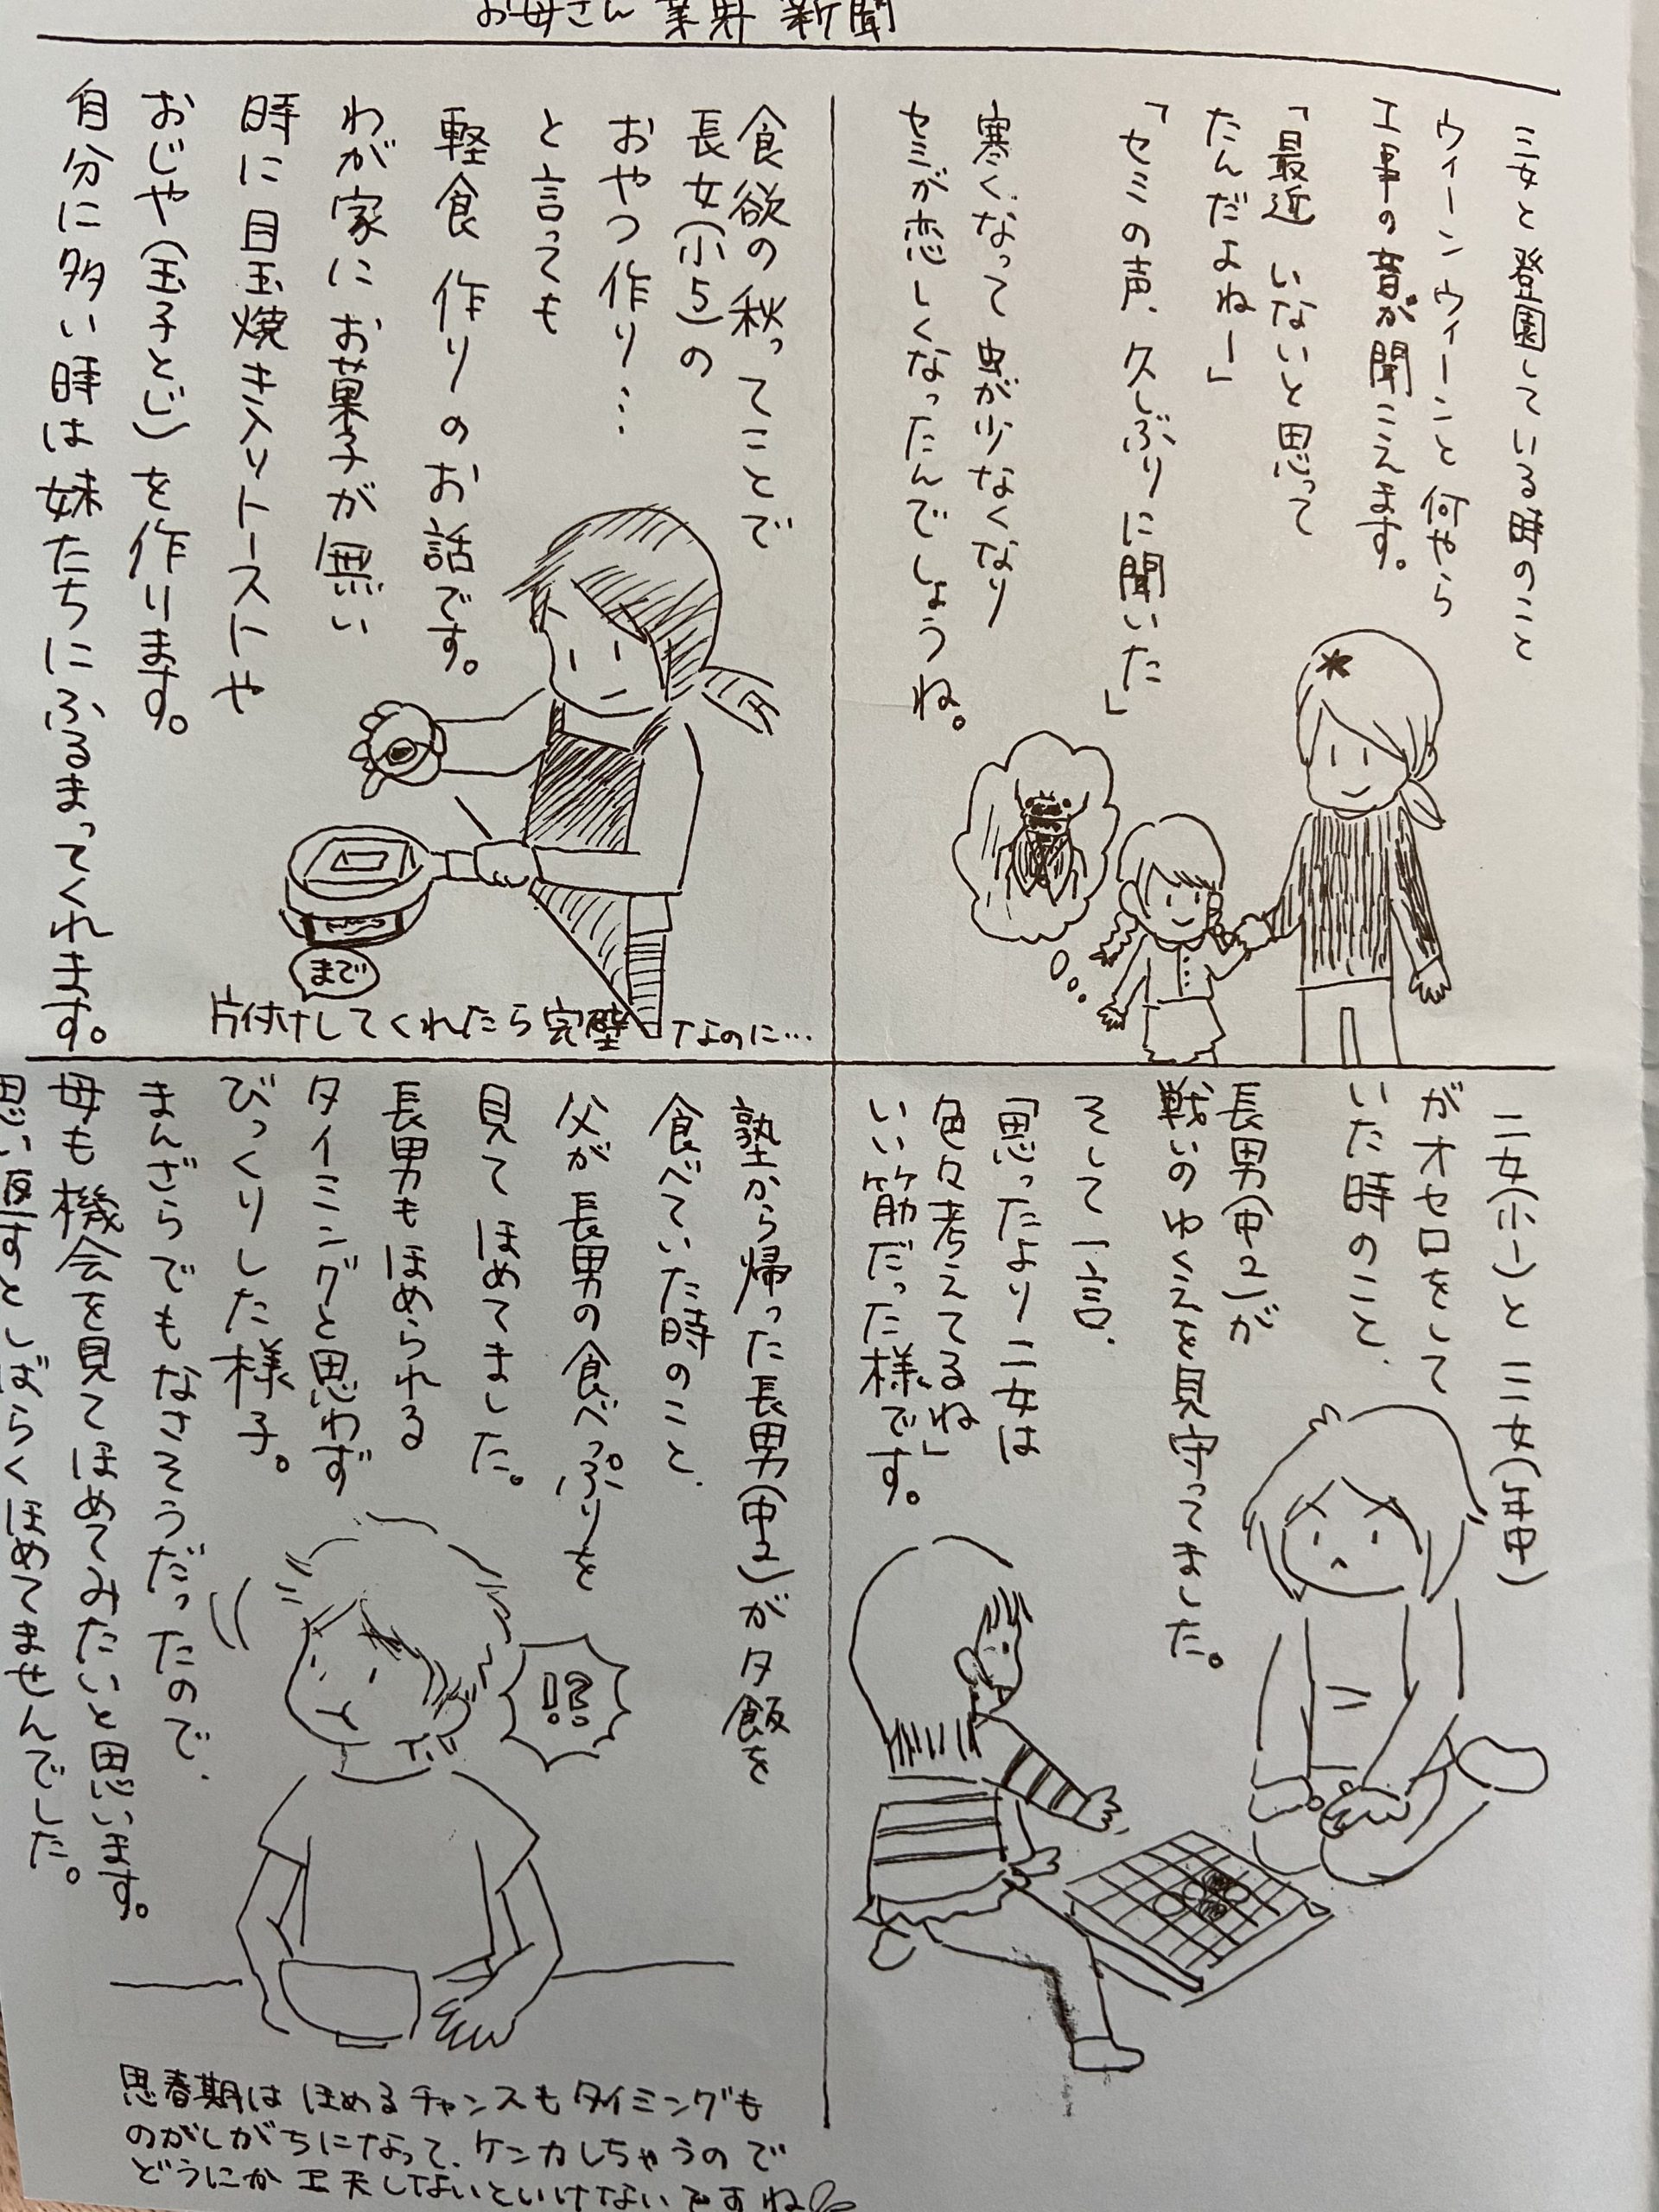 お母さん業界新聞
三女と登園している時のこと
ウィーンウィーンと何やら
工事の音が聞こえます。
「最近いないと思って
たんだよねー」
「セミの声、久しぶりに聞いた」
寒くなって虫が少なくなり
セミが恋しくなったんでしょうね。
食欲の秋ってことで
長女(小5)の
おやつ作り…
と言っても
軽食作りのお話です。
わが家にお菓子が無い
時に目玉焼き入りトーストや
おじや(玉子とじ)を作ります。
自分に多い時は妹たちにふるまってくれます。
まで
片付けしてくれたら完璧なのに…
二女(小一)と三女(年中)
がオセロをして
いた時のこと、
長男(中2)が
戦いのゆくえを見守ってました。
そして一言、
「思ったより二女は
色々考えてるね」
いい筋だった様です。
塾から帰った長男(中2)が夕飯を
食べていた時のこと、
父が長男の食べっぷりを
見てほめてました。
長男もほめられる
タイミングと思わず
びっくりした様子。
まんざらでもなさそうだったので、
母も機会を見てほめてみたいと思います。
思い返すとしばらくほめてませんでした。
!?
思春期はほめるチャンスもタイミングも
のがしがちになって、ケンカしちゃうので
どうにか工夫しないといけないですね